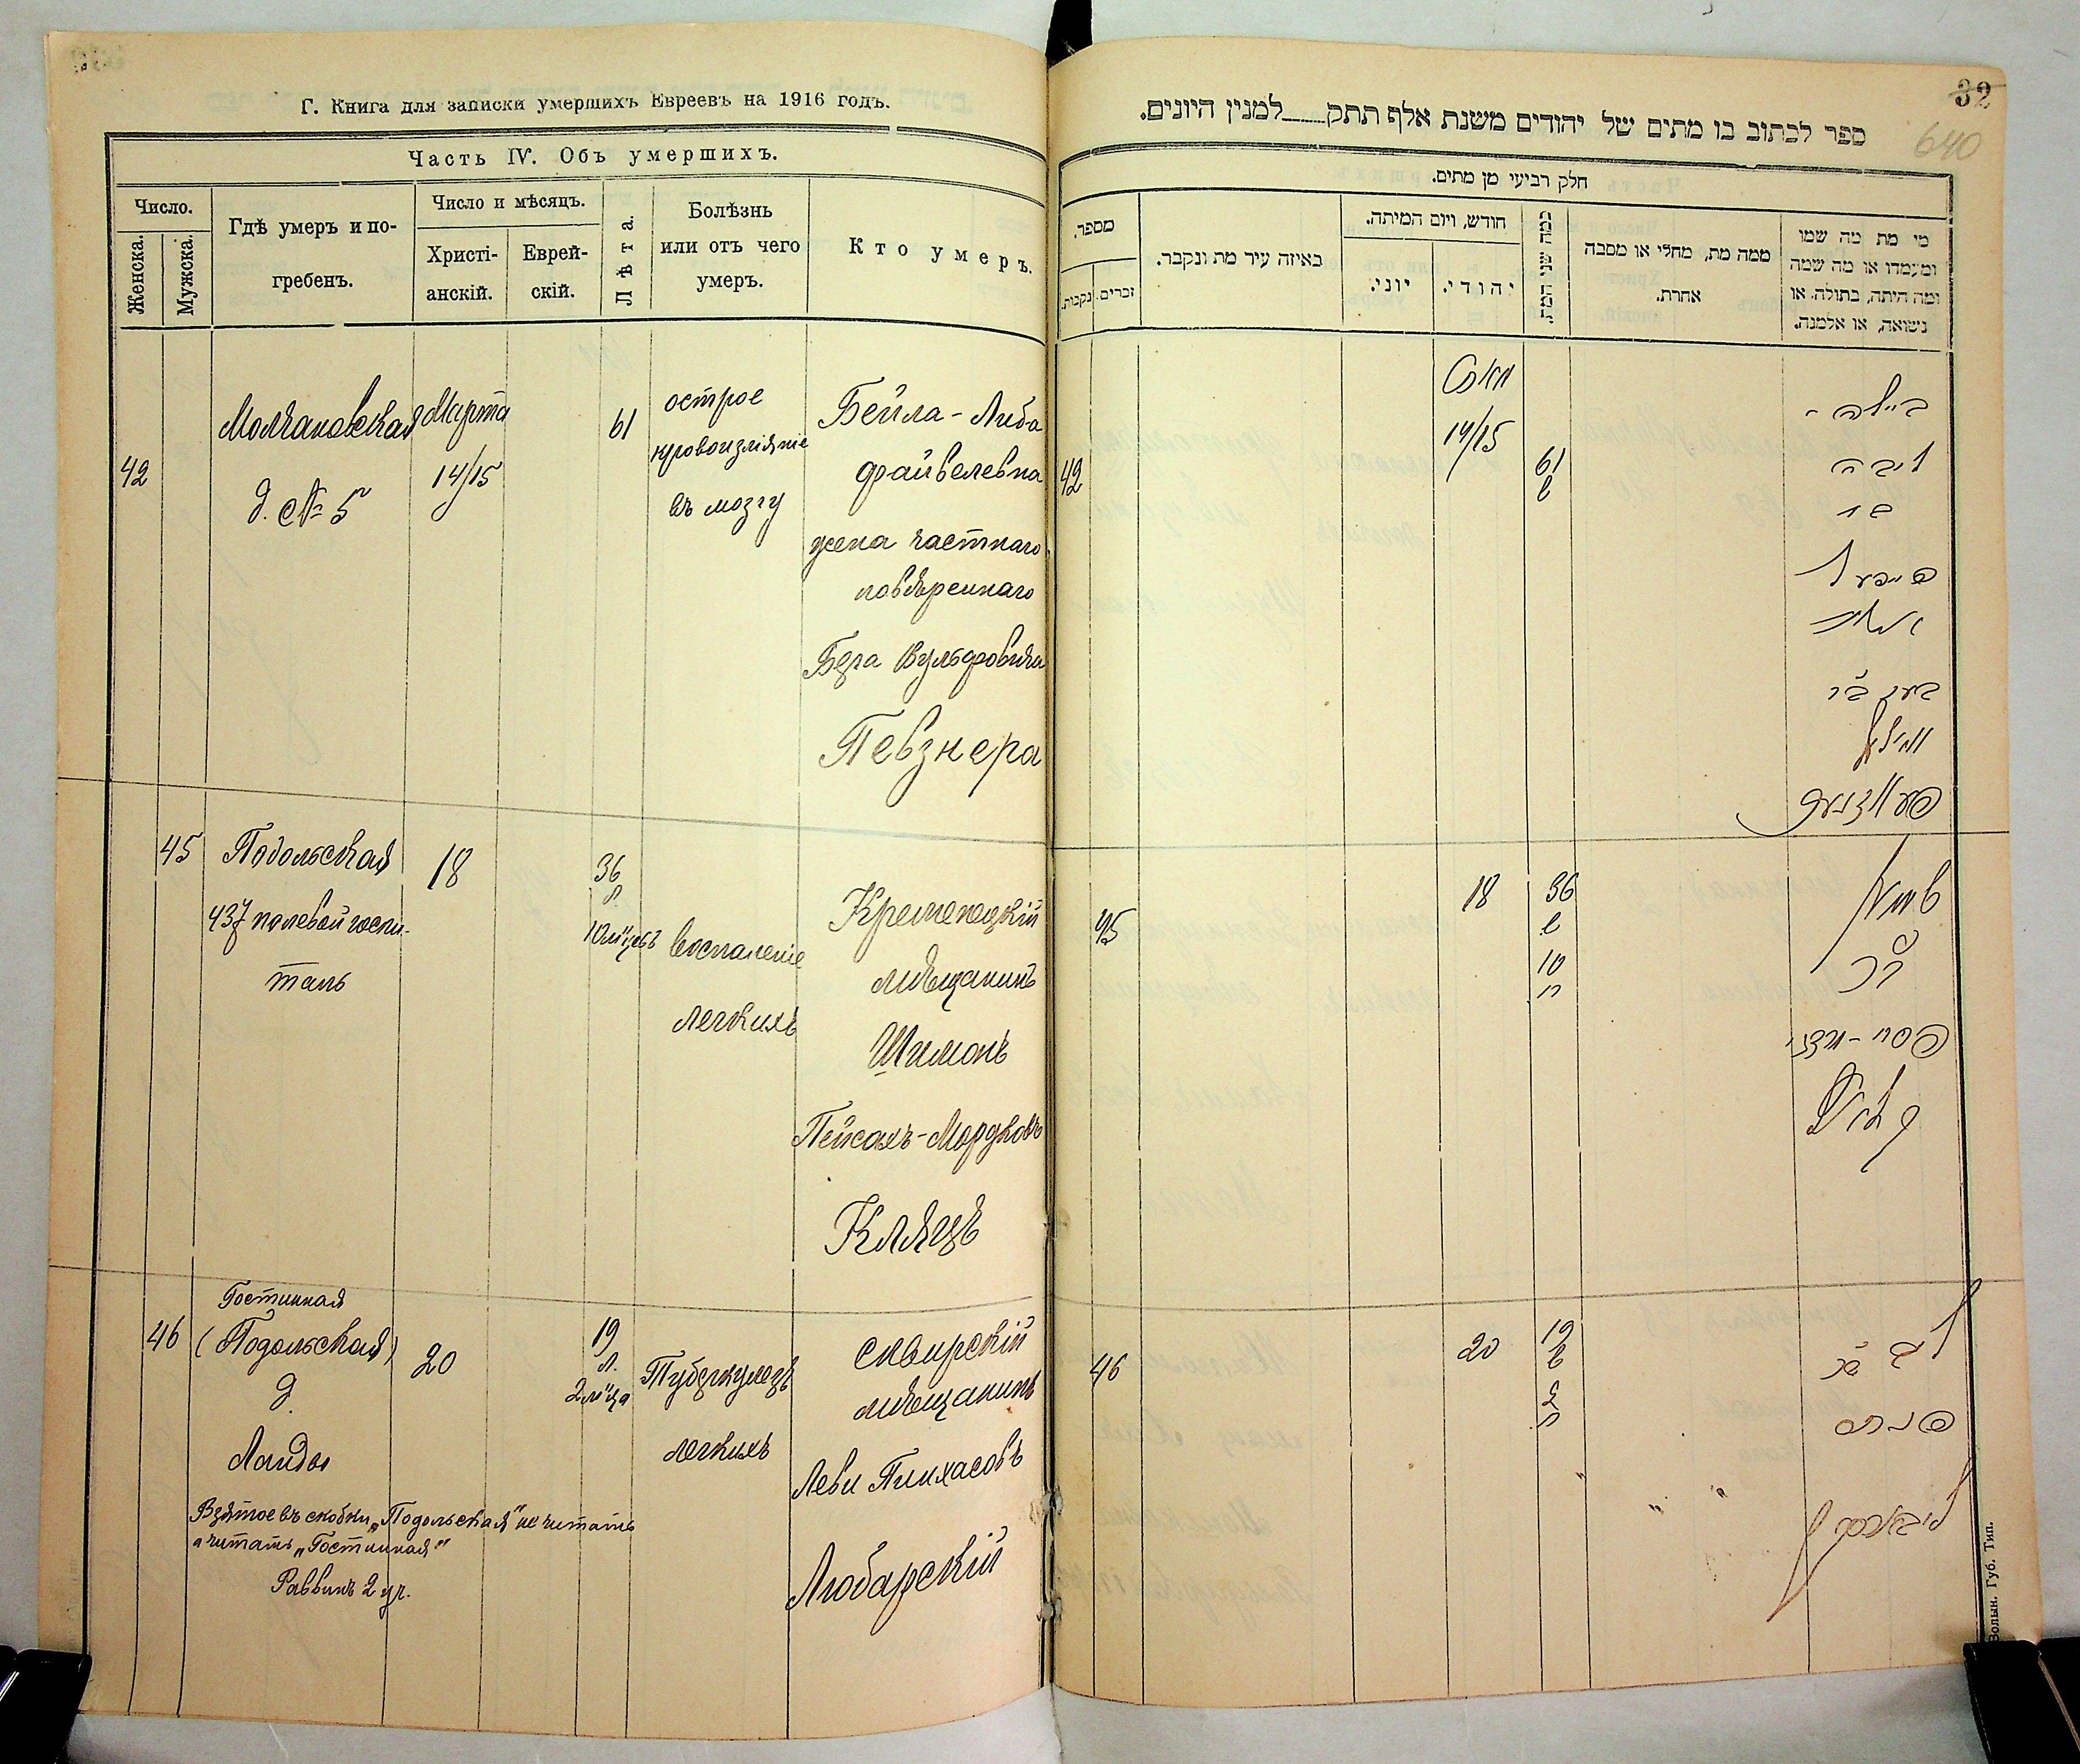 Г. Книга для записки умершихъ Евреевъ на 1916 годъ.
Часть IV. Объ умершихъ.
Число.
Женска.
Мужска.
Гдѣ умеръ и по-
гребенъ.
Число и мѣсяцъ.
Христі-
анскій.
Еврей-
скій.
Лѣта.
Болѣзнь
или отъ чего
умеръ.
Кто умеръ.
42
Молчановская
д. № 5
Марта
14/15
61
острое
кровоизліяніе
въ мозгу
Бейла-Либа
Файвелевна
жена частнаго
повѣреннаго
Бера Вульфовича
Певзнера
45
Подольская
437 полевой госпи-
таль
18
36
л
10 м'цевъ
воспаленіе
легкихъ
Кременецкій
мѣщанинъ
Шимонъ
Пейсахъ-Мордковъ
Клейцъ
46
Гостинная
(Подольская)
д.
Ланды
20
19
л.
2 м'ца
Туберкулезъ
легкихъ
сквирскій
мѣщанинъ
Леви Пинхасовъ
Любарскій
Взятое въ скобки „Подольская" не читать
а читать „Гостинная"
Раввинъ 2 уч.
32
640
ספר לכתוב בו מתים של יהודים משנת אלף תתק למנין היונים.
חלק רביעי מן מתים.
מספר.
נקבות.
זכרים.
באיזה עיר מת ונקבר.
חודש, ויום המיתה.
יוני.
יהודי.
כמה שני המת.
ממה מת, מחלי או מסבה
אחרת.
מי מת מה שמו
ומעמדו או מה שמה
ומה היתה, בתולה. או
נשואה, או אלמנה.
42
14/15
61
ביילה -
ליבה
פעווזנער
45
18
36
10
46
20
19
2
ליבארסקי
Волын. Губ. Тип.